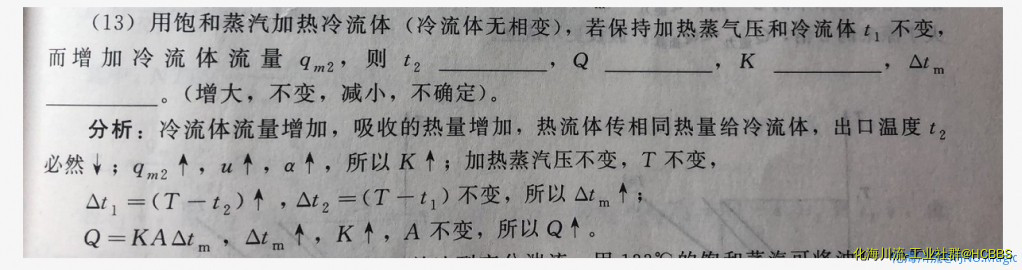 (13) 用饱和蒸汽加热冷流体（冷流体无相变），若保持加热蒸气压和冷流体 t₁ 不变，
而增加冷流体流量 qm2，则 t₂ ________，Q ________，K ________，Δtm
________。（增大，不变，减小，不确定）。
分析：冷流体流量增加，吸收的热量增加，热流体传相同热量给冷流体，出口温度 t₂
必然↓；qm2↑，u↑，α↑，所以 K↑；加热蒸汽压不变，T 不变，
Δt₁=(T－t₂)↑，Δt₂=(T－t₁)不变，所以 Δtm↑；
Q=KAΔtm，Δtm↑，K↑，A 不变，所以 Q↑。
化海川流-工业社群@HCBBS